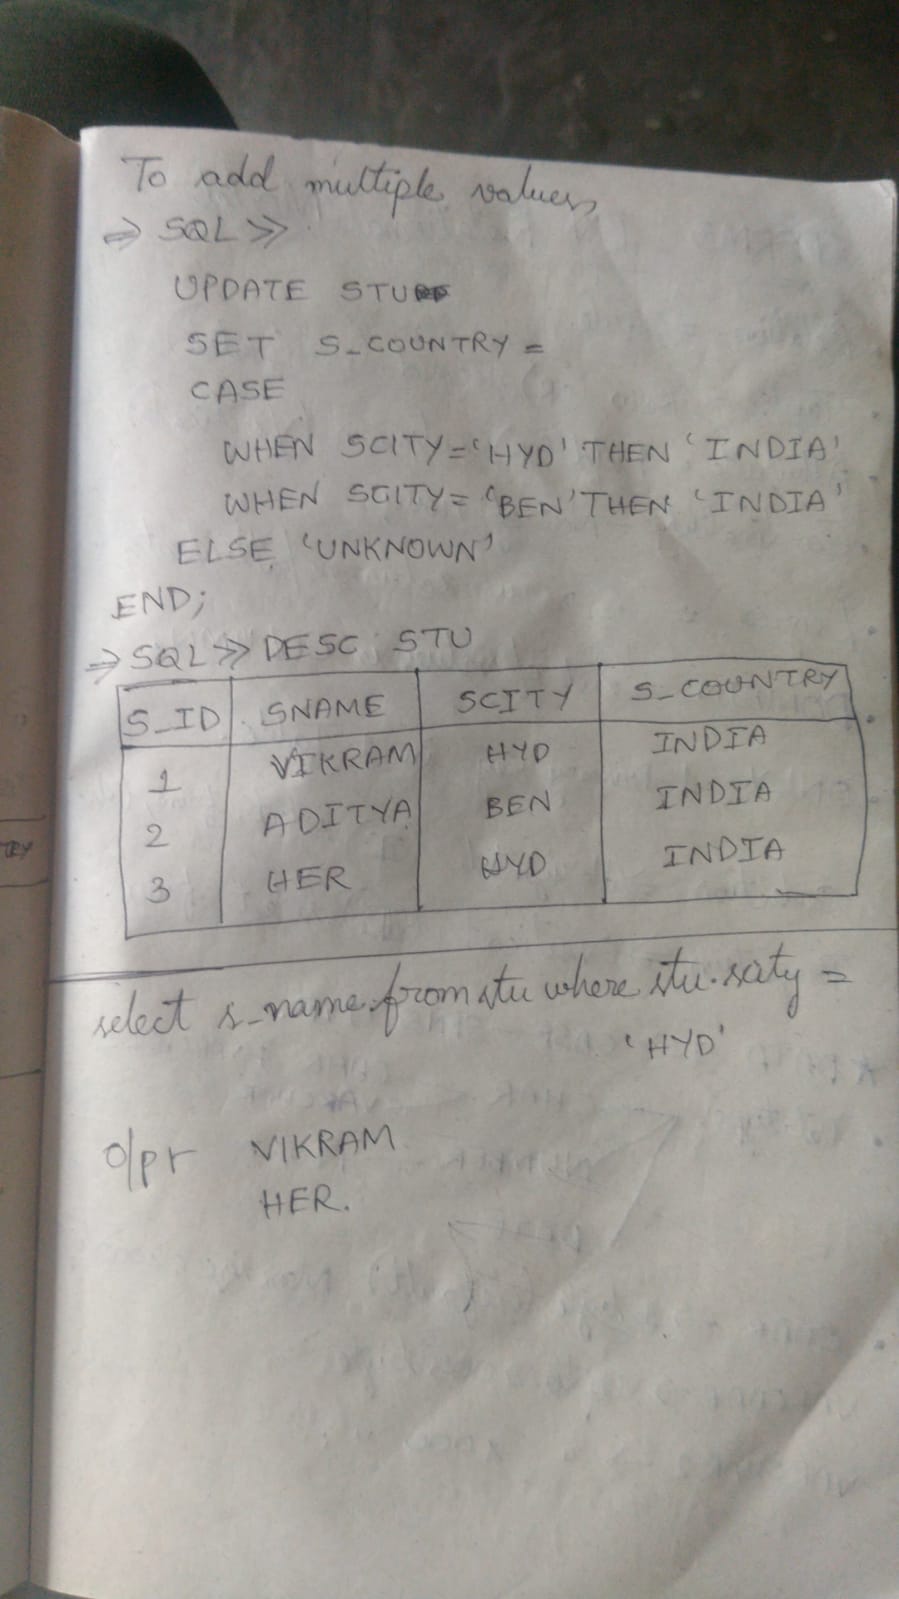 To add multiple values
⇒ SQL >>
UPDATE STU
SET S_COUNTRY =
CASE
WHEN SCITY='HYD' THEN 'INDIA'
WHEN SCITY='BEN' THEN 'INDIA'
ELSE 'UNKNOWN'
END;
⇒ SQL >> DESC STU
S_ID SNAME SCITY S_COUNTRY
1 VIKRAM HYD INDIA
2 ADITYA BEN INDIA
3 HER HYD INDIA
select s_name from stu where stu.scity =
'HYD'
VIKRAM
HER.